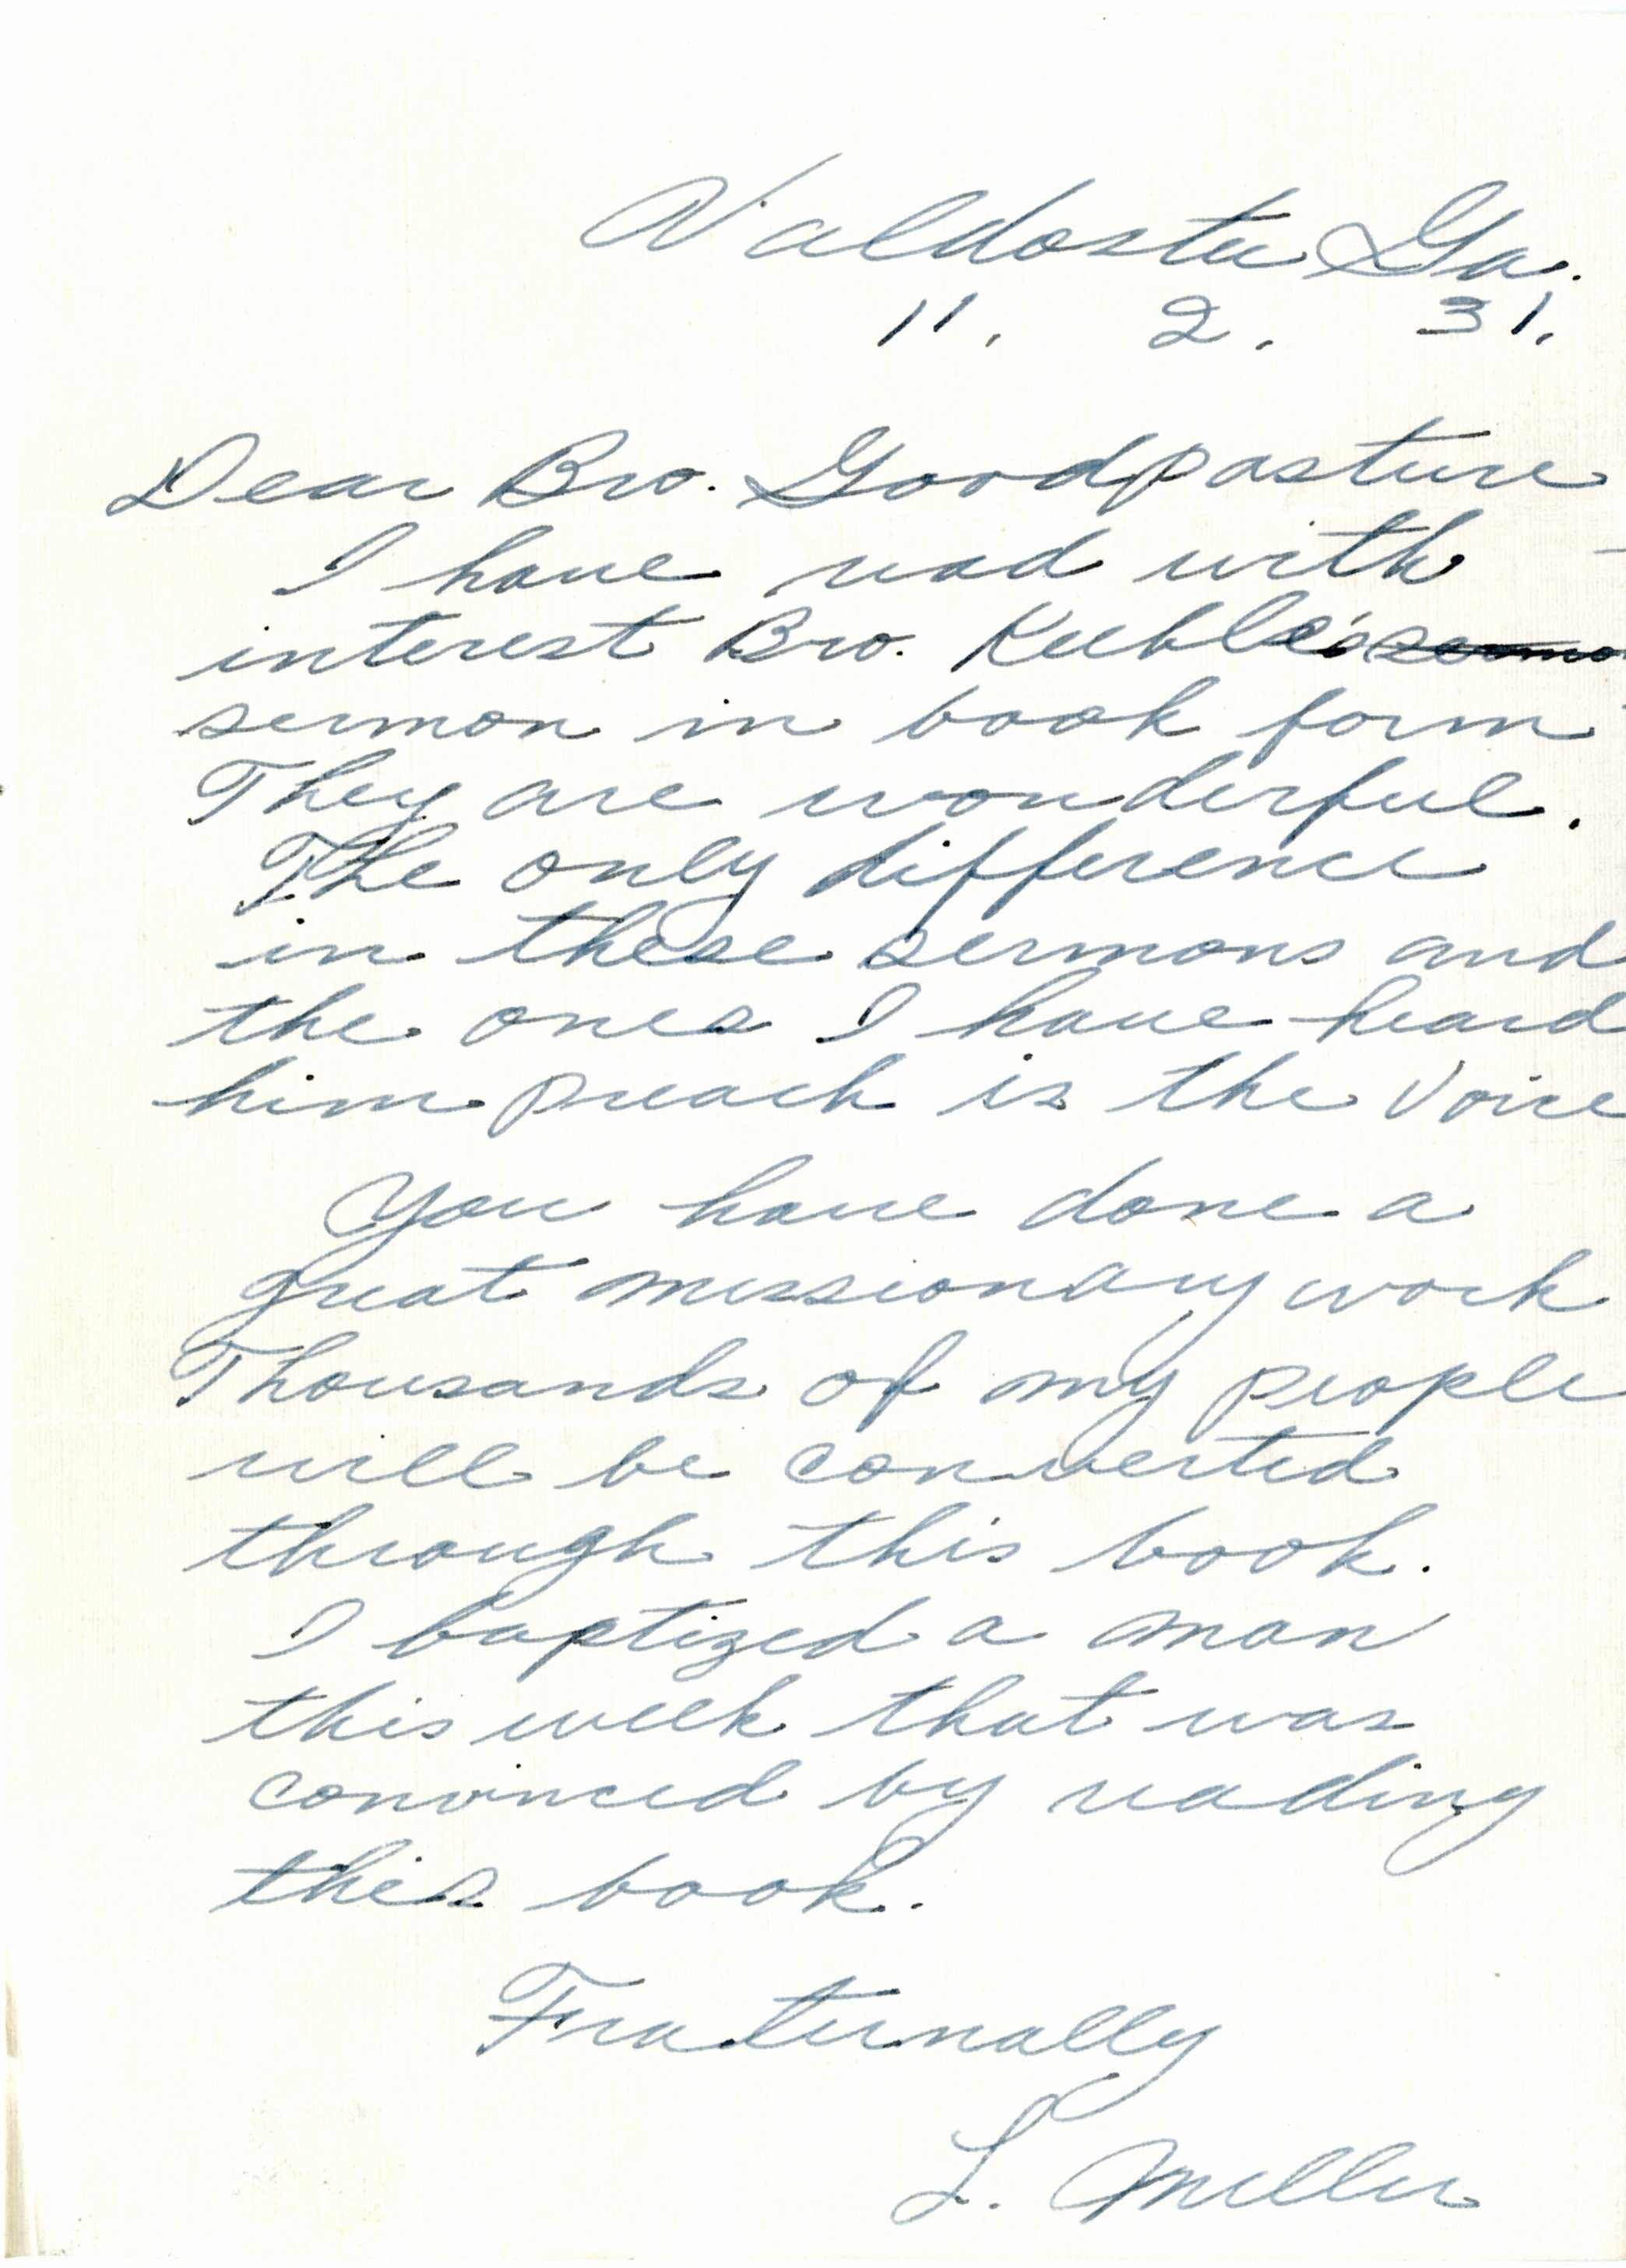 Valdosta Ga.
11. 2. 31.
Dear Bro. Goodpasture
I have read with
interest Bro. Keeble's sermo
sermon in book form
They are wonderful.
The only difference
in these sermons and
the ones I have heard
him preach is the voice
You have done a
great missionary work
Thousands of my people
will be converted
through this book.
I baptized a man
this week that was
convinced by reading
this book.
Fraternally
L. Miller